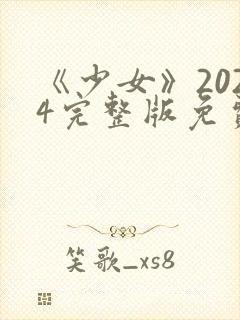 《少女》202
4完整版免费
笑歌_xs8